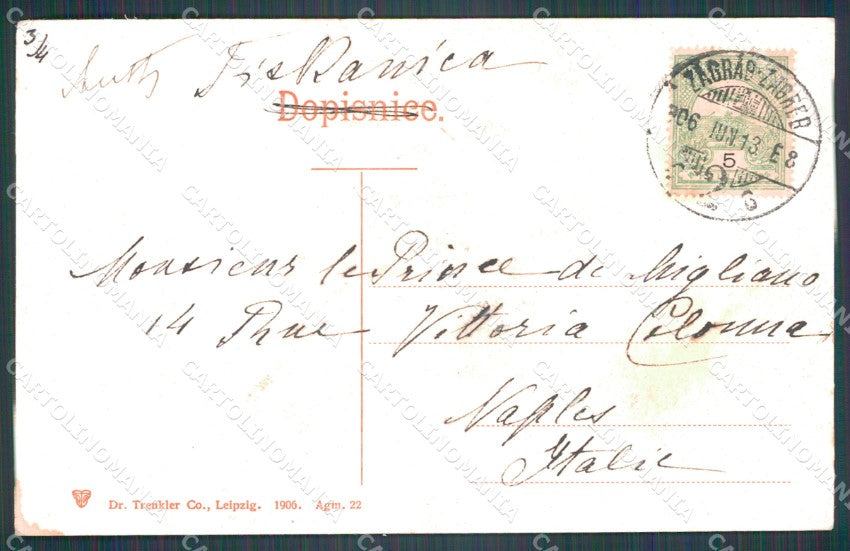 3/4
Tiskanica
Dopisnice.
ZÁGRÁB-ZAGREB
906 JUN 13 E 8
5
Monsieur le Prince de Migliano
14 Rue Vittoria Colonna
Naples
Italie
Dr. Trenkler Co., Leipzig. 1906. Agm. 22
CARTOLINOMANIA